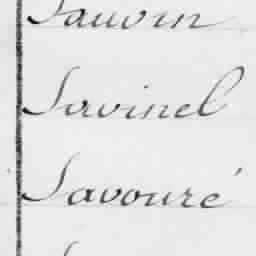 Sauvin
Savinel
Savouré